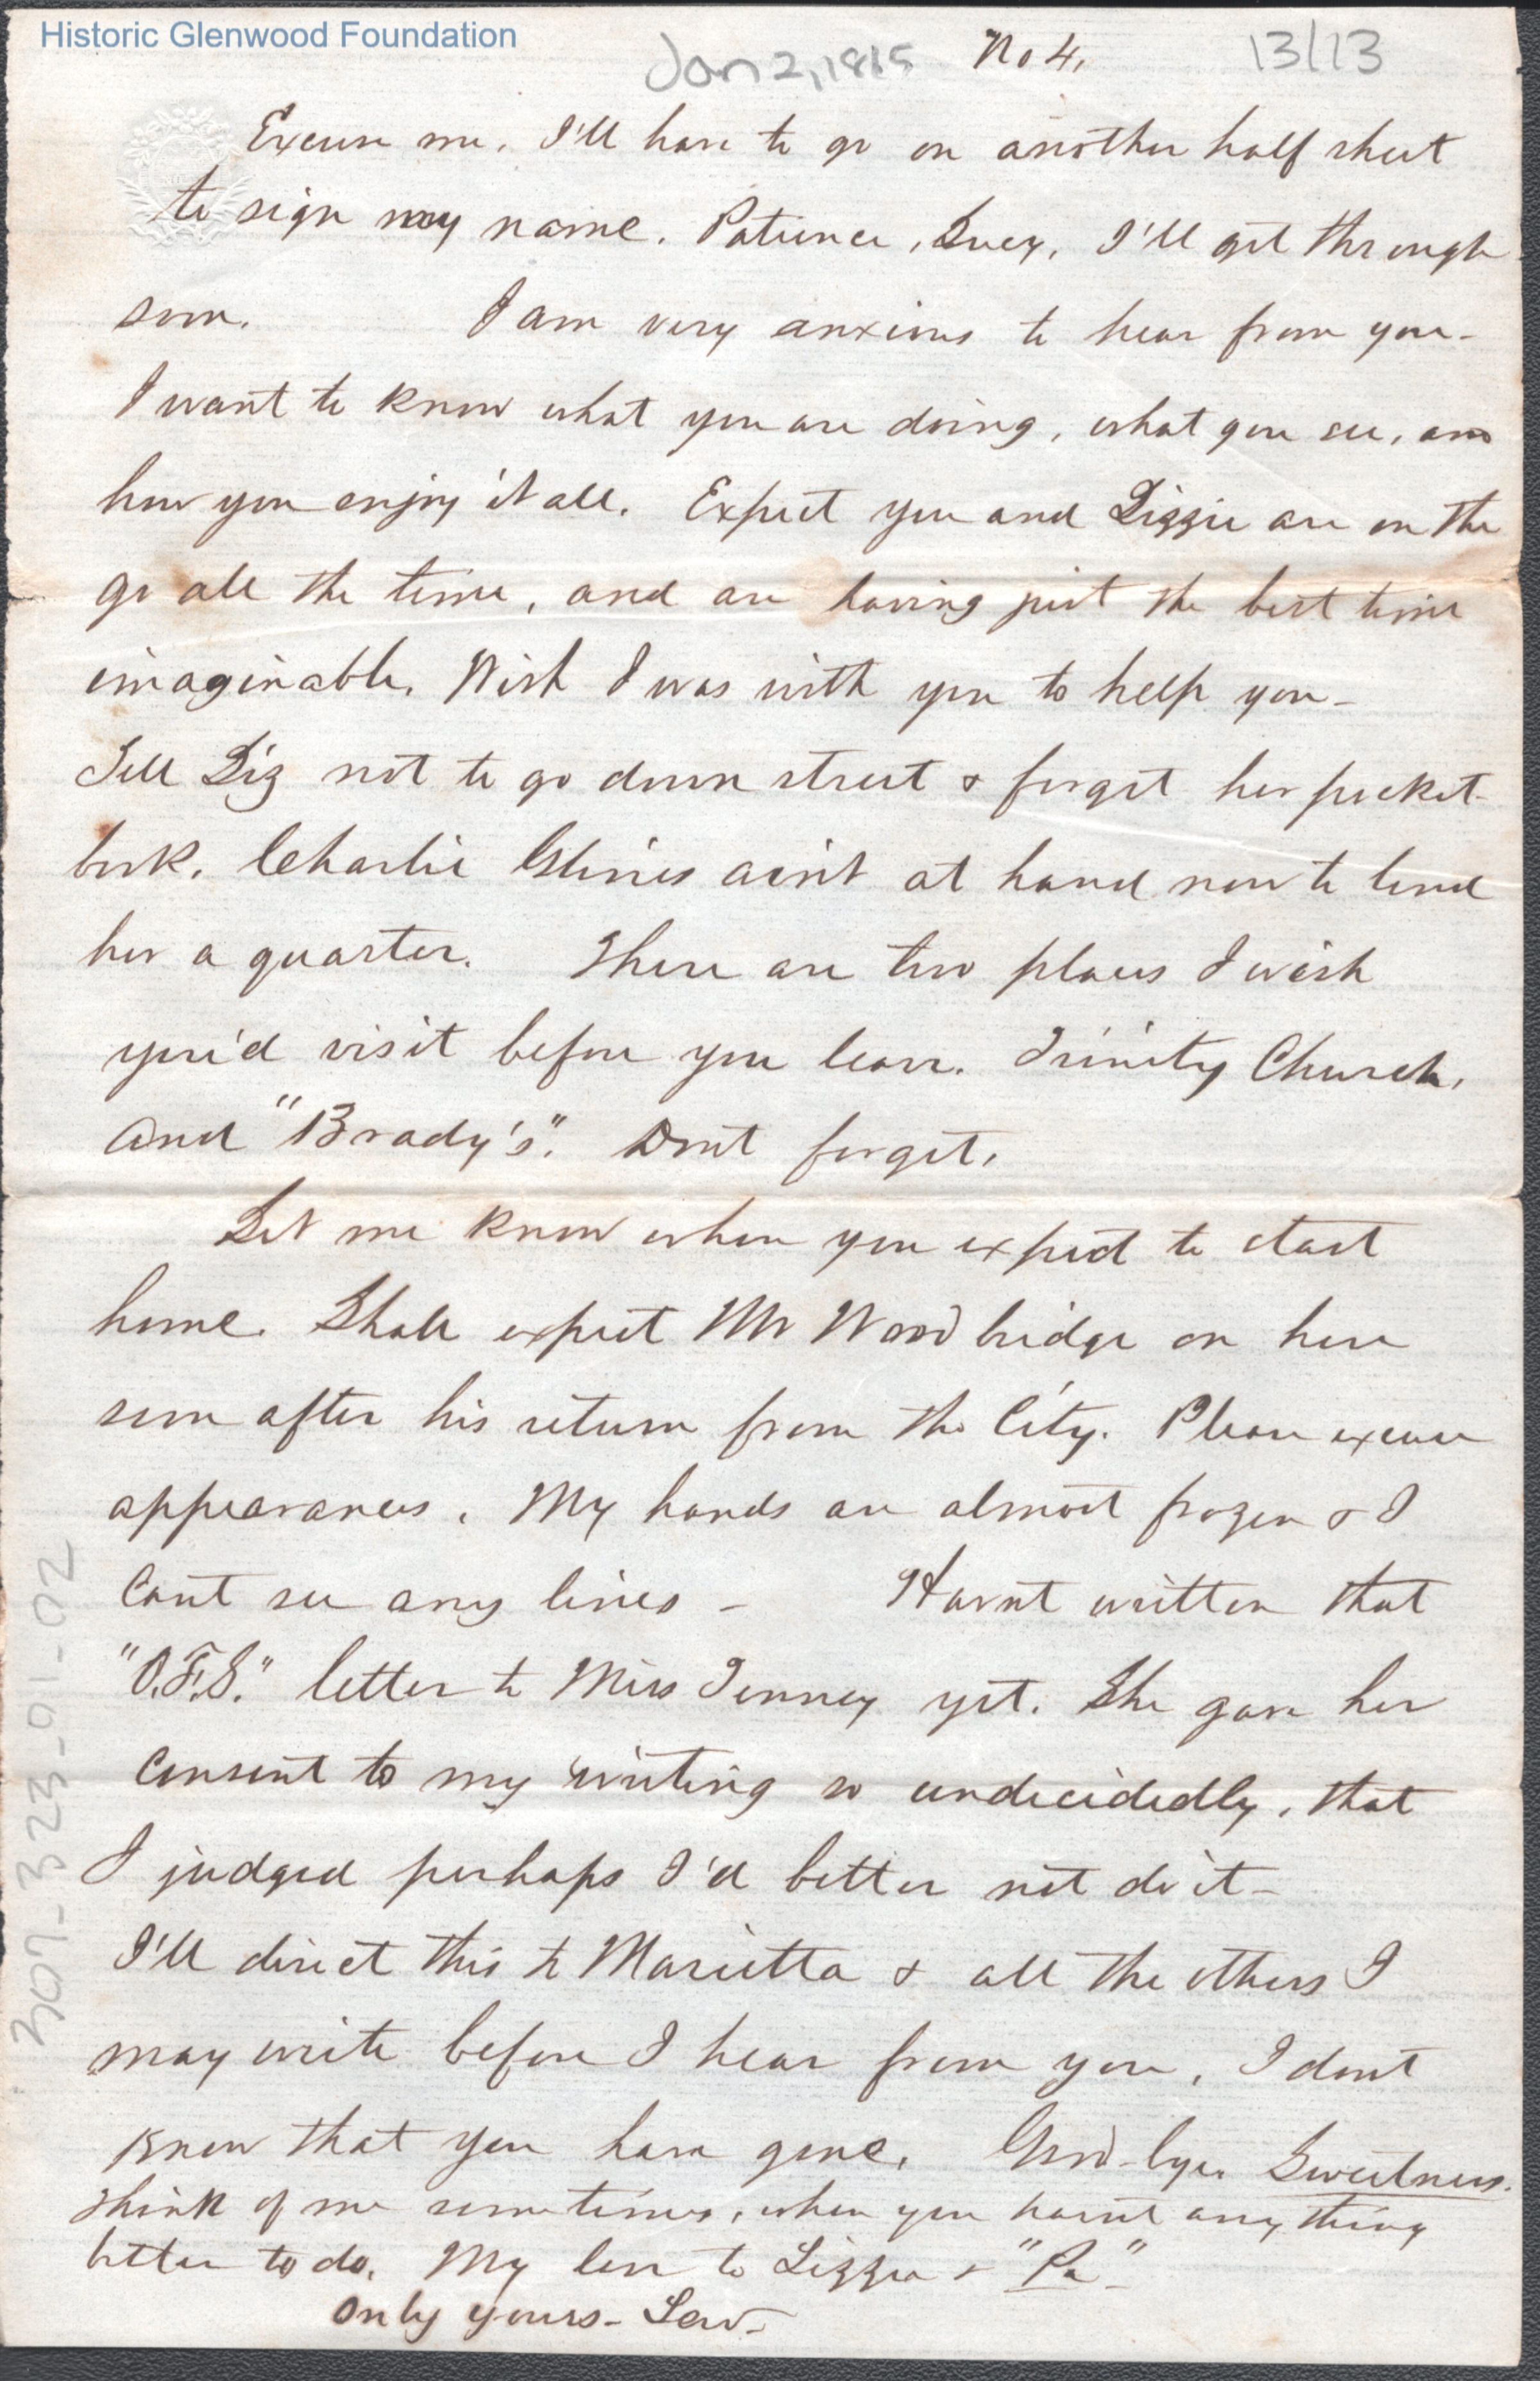 Historic Glenwood Foundation
Jan 2, 1865 No 4. 13/13
Excuse me. I'll have to go on another half sheet
to sign my name. Patience, Lucy, I'll get through
soon. I am very anxious to hear from you-
I want to know what you are doing, what you see, and
how you enjoy it all. Expect you and Lizzie are on the
go all the time, and are having just the best time
imaginable. Wish I was with you to help you-
Tell Liz not to go down street & forget her pocket-
book. Charlie Glines ain't at hand now to lend
her a quarter. There are two places I wish
you'd visit before you leave. Trinity Church,
and "Brady's". Dont forget.
Let me know when you expect to start
home. Shall expect Mr Woodbridge on here
soon after his return from the City. Please excuse
appearances. My hands are almost frozen & I
cant see any lines - Havnt written that
"O.F.S." letter to Miss Tenney yet. She gave her
consent to my writing so undecidedly, that
I judged perhaps I'd better not do it-
I'll direct this to Marietta & all the others I
may write before I hear from you, I dont
know that you have gone. Good-bye. Sweetness.
Think of me sometimes, when you havnt anything
better to do. My love to Lizzie & "Pa"
Only yours- Lew-
307-323-01-02